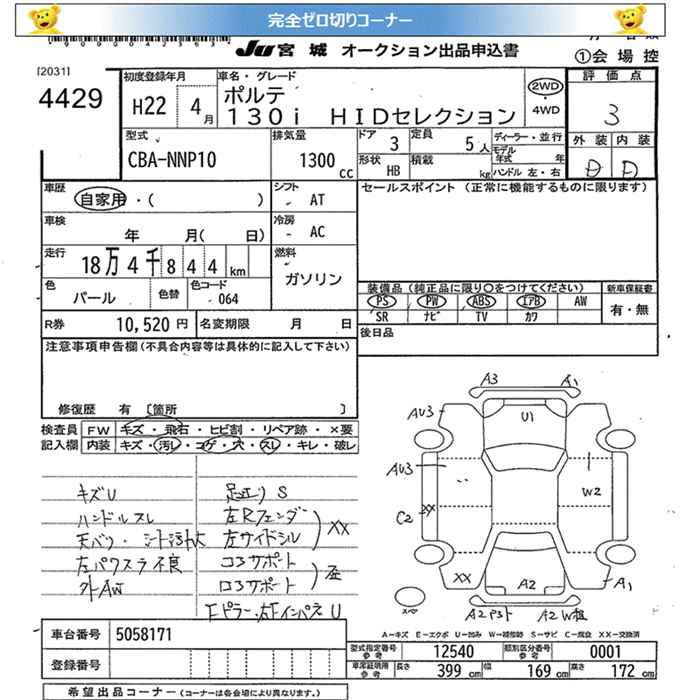 完全ゼロ切りコーナー
JU宮城 オークション出品申込書
①会場控
[2031]
4429
初度登録年月
H22 4月
車名・グレード
ポルテ
130i HIDセレクション
2WD
・
4WD
評価点
3
型式
CBA-NNP10
排気量
1300 cc
ドア 3
形状 HB
定員 5人
積載 kg
ディーラー・並行
モデル年式 年
ハンドル 左・右
外装 内装
D D
車歴
自家用・( )
シフト
AT
セールスポイント (正常に機能するものに限ります)
車検
年 月( 日)
冷房
AC
走行
18万4千844km
燃料
ガソリン
色
パール
色替
色コード
064
装備品(純正品に限り○をつけてください)
新車保証書
PS PW ABS エアB AW
SR ナビ TV カワ
有・無
R券 10,520円
名変期限 月 日
後日品
注意事項申告欄(不具合内容等は具体的に記入して下さい)
修復歴 有 [箇所 ]
検査員 FW キズ・飛石・ヒビ割・リペア跡・×要
記入欄 内装 キズ・汚レ・コゲ・穴・スレ・キレ・破レ
キズU
ハンドルスレ
天バリ・シート汚れ大
左パワスラ不良
外AW
足廻りS
左Rフェンダー
左サイドシル
XX
コアサポート
ロアサポート
歪
A3 A1
AU3
U1
AU3
W2
C2 XX
XX
A2
A1
スペ
A2 W粗
A-キズ E-エクボ U-凹み W-補修跡 S-サビ C-腐食 XX-交換済
車台番号 5058171
登録番号
型式指定番号 参考 12540
類別区分番号 参考 0001
車庫証明用 参考 長さ 399cm 幅 169cm 高さ 172cm
希望出品コーナー (コーナーは各会場により異なります。)